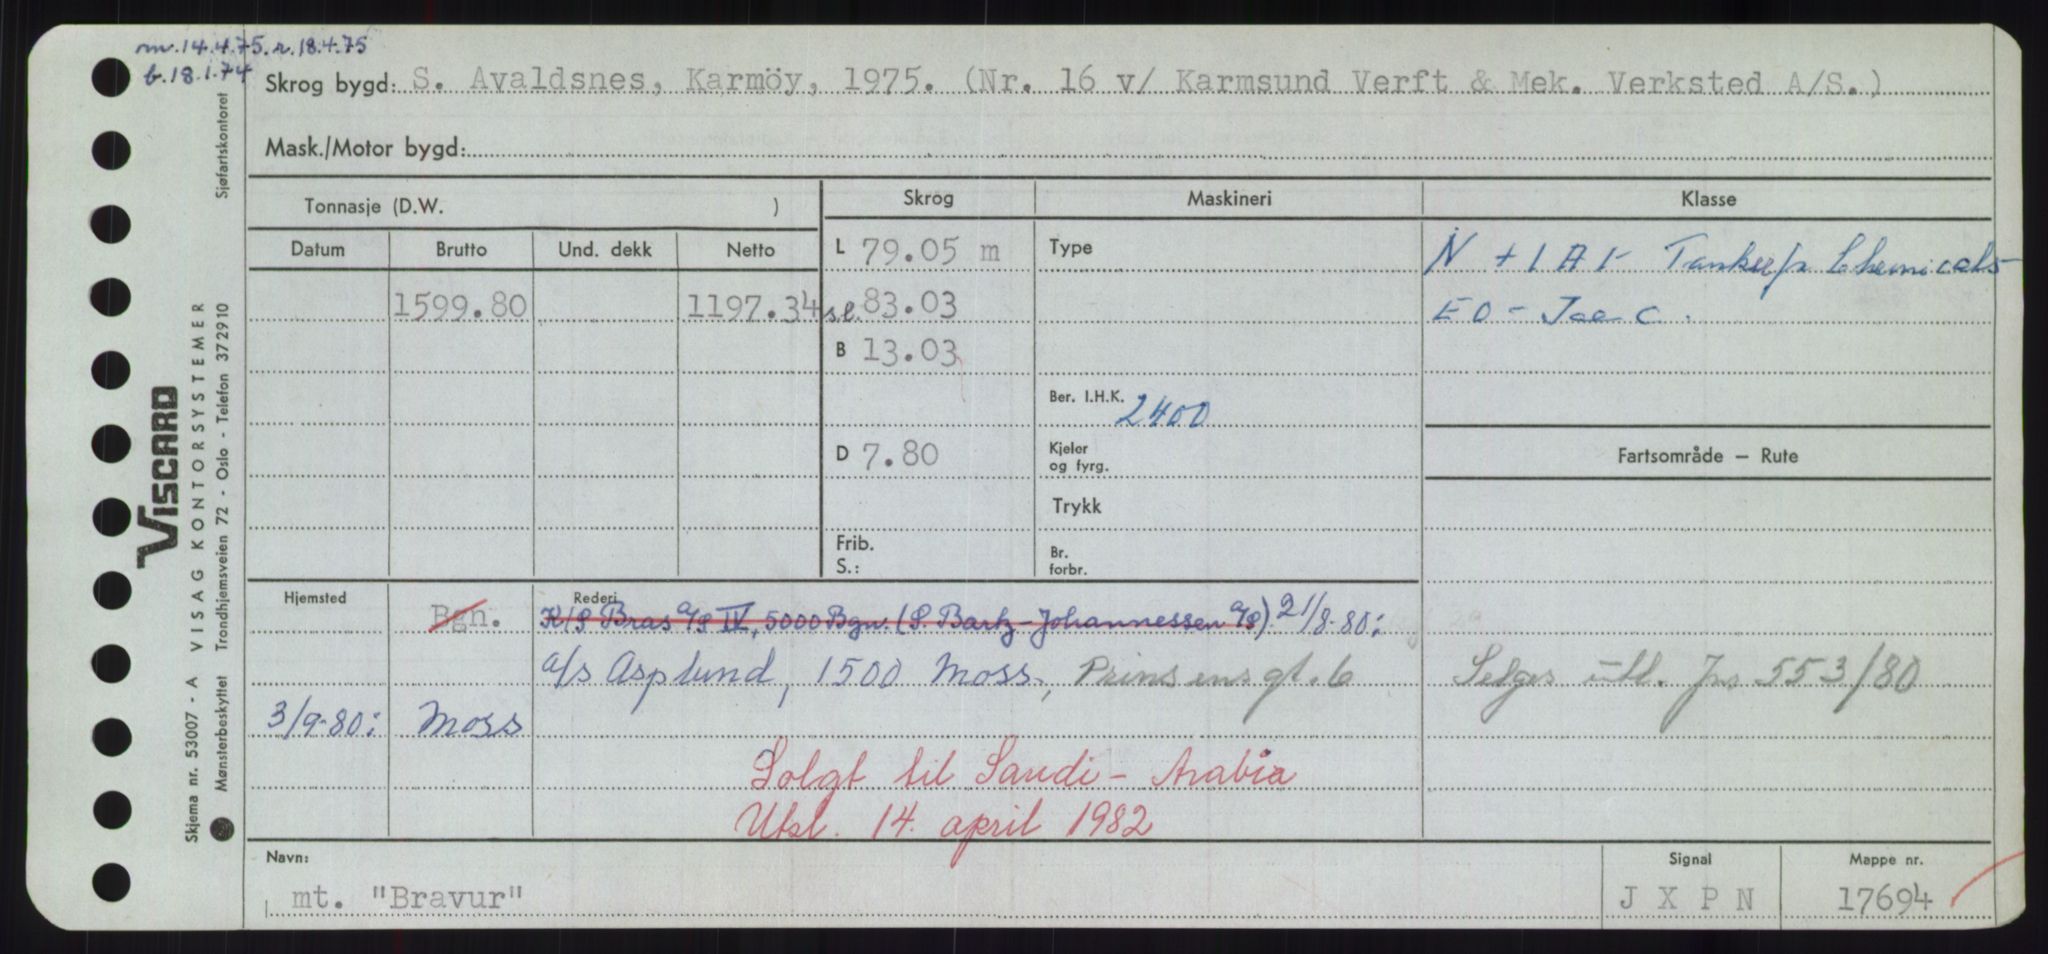 m. 14.4.75. r. 18.4.75
b. 18.1.74
Skrog bygd: S. Avaldsnes, Karmöy, 1975. (Nr. 16 v/ Karmsund Verft & Mek. Verksted A/S.)
Mask./Motor bygd:
Tonnasje (D.W. )
Skrog
Maskineri
Klasse
Datum
Brutto
Und. dekk
Netto
L 79.05 m
Type
N + 1 A 1 - Tankskip Chemicals
1599.80
1197.34
s.l. 83.03
E0 - Ice C.
B 13.03
Ber. I.H.K. 2400
D 7.80
Kjeler
og fyrg.
Fartsområde — Rute
Trykk
Frib.
S.:
Br.
forbr.
Hjemsted
Bgn.
Rederi
K/S Bras A/S IV, 5000 Bgn. (S. Bartz-Johannessen A/S). 21/8-80:
A/S Asplund, 1500 Moss, Prinsensgt. 6
Selges utl. Jnr 553/80
3/9-80: Moss
Solgt til Saudi-Arabia
Utsl. 14. april 1982
Navn:
mt. "Bravur"
Signal
J X P N
Mappe nr.
17694
VISCARD
Skjema nr. 53007 - A VISAG KONTORSYSTEMER
Mønsterbeskyttet Trondhjemsveien 72 - Oslo - Telefon 372910
Sjøfartskontoret